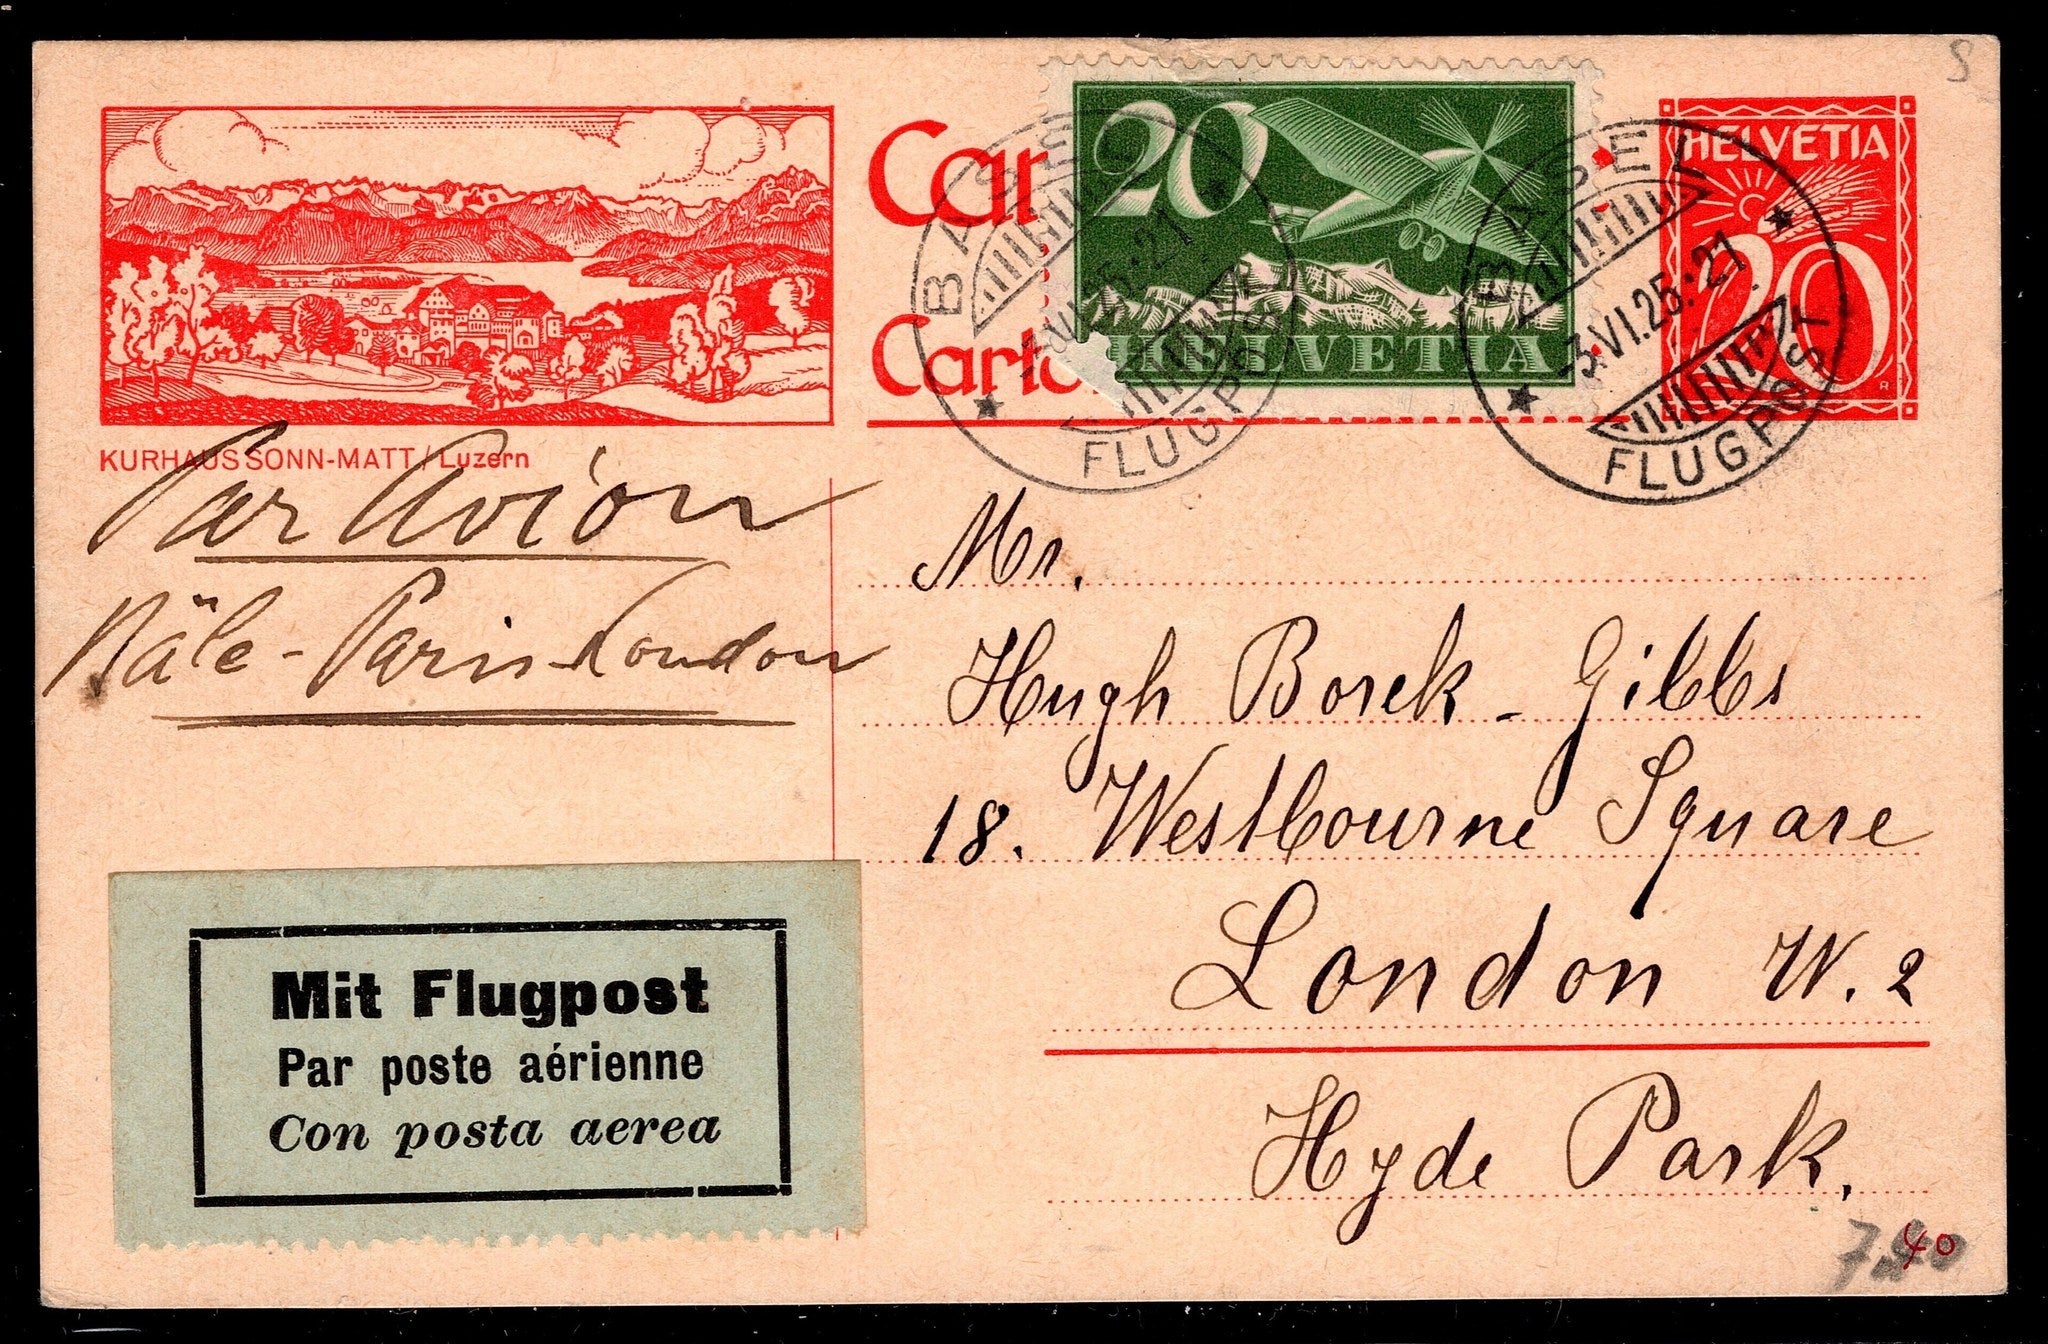 S
20
HELVETIA
HELVETIA
20
R
Car
Carto
BASEL
-3.VI.25.-21
FLUGPOST
BASEL
-3.VI.25.-21
FLUGPOST
KURHAUS SONN-MATT / Luzern
Par Avion
Bâle - Paris - London
Mr.
Hugh Borek - Gibbs
18. Westbourne Square
London W. 2
Hyde Park.
Mit Flugpost
Par poste aérienne
Con posta aerea
40